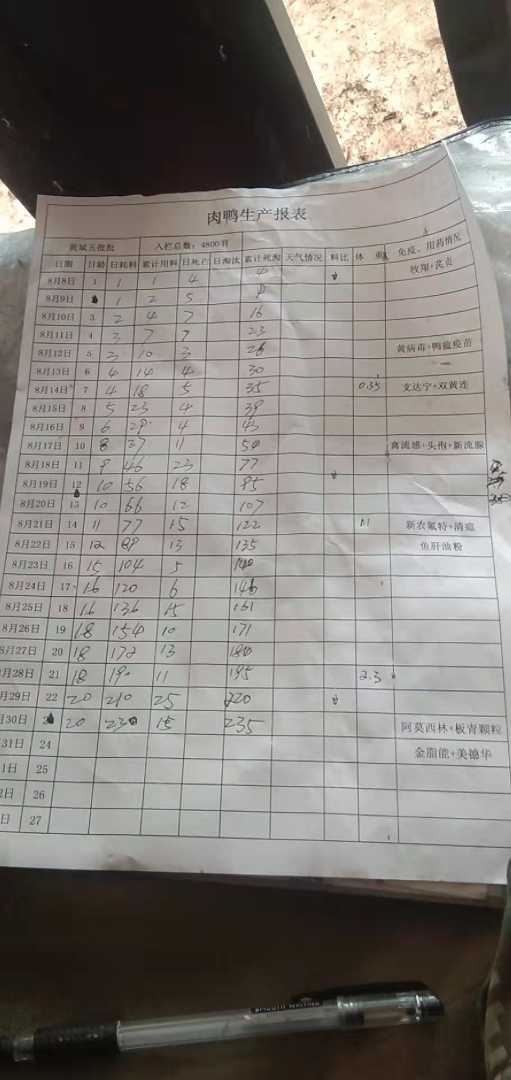 肉鸭生产报表
黄斌五批批 入栏总数：4800羽
日期 日龄 日耗料 累计用料 日死亡 日淘汰 累计死淘 天气情况 料比 体重 免疫、用药情况
8月8日 1 1 1 4 4 牧翔+芪贞
8月9日 1 2 5
8月10日 3 2 4 7 16
8月11日 4 3 7 7 23
8月12日 5 3 10 3 26 黄病毒+鸭瘟疫苗
8月13日 6 4 14 4 30
8月14日 7 4 18 5 35 0.35 支达宁+双黄连
8月15日 8 5 23 4 39
8月16日 9 6 29 4 43
8月17日 10 8 37 11 54 禽流感+头孢+新流腺
8月18日 11 9 46 23 77
8月19日 12 10 56 18 95
8月20日 13 10 66 12 107
8月21日 14 11 77 15 122 新农氟特+清瘟
8月22日 15 12 89 13 135 鱼肝油粉
8月23日 16 15 104 5 140
8月24日 17 16 120 6 146
8月25日 18 16 136 15 161
8月26日 19 18 154 10 171
8月27日 20 18 172 13 184
月28日 21 18 190 11 195 2.3
月29日 22 20 210 25 220
月30日 20 230 15 235 阿莫西林+板青颗粒
31日 24 金脂能+美德华
1日 25
2日 26
日 27